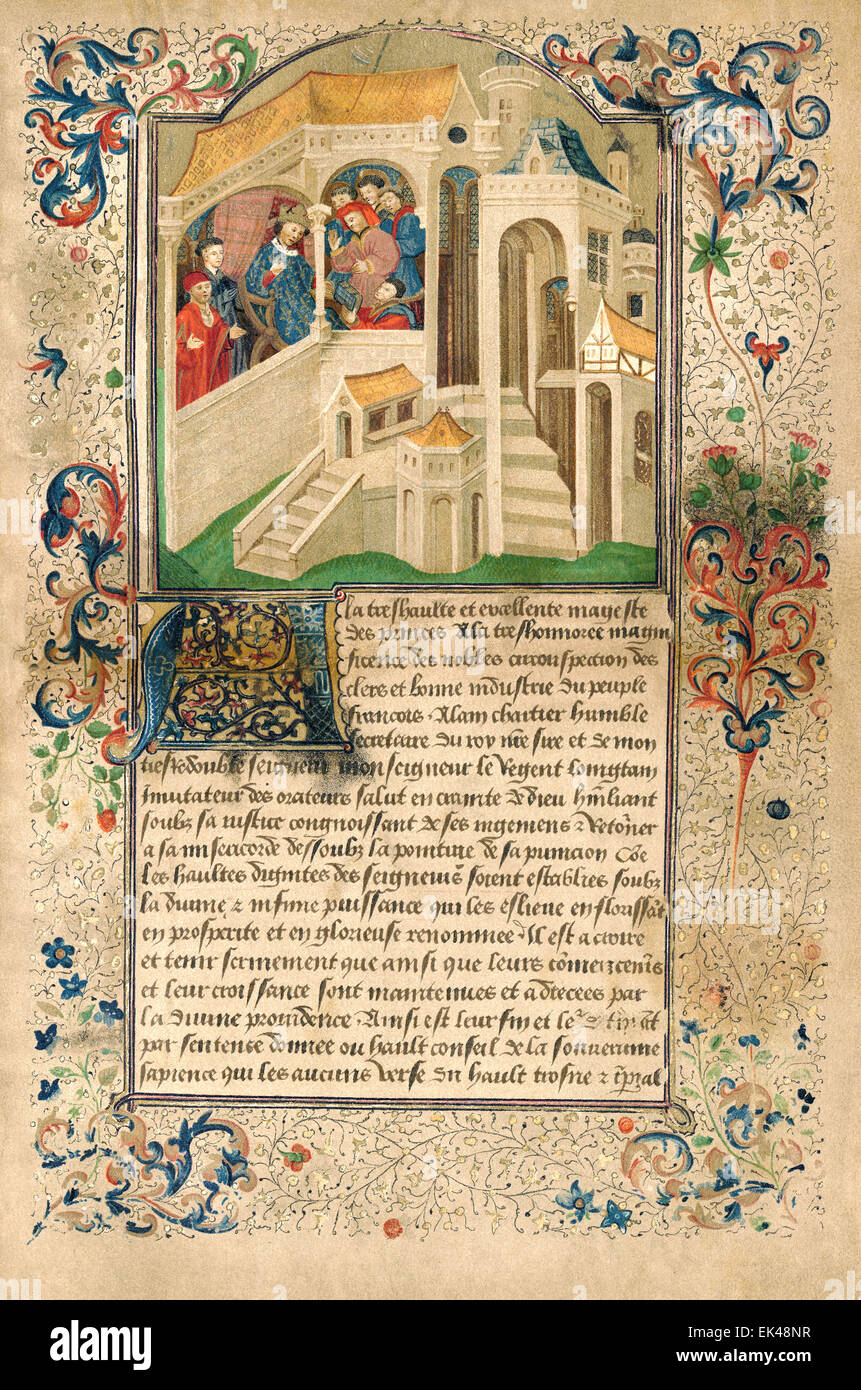 la treshaulte et excellente mageste
des princes Ala treshonnoree magni
ficence des nobles circonspection des
clers et bonne industrie du peuple
francois . Alain chartier humble
secretaire du roy nre sire et de mon
tresredoubte seigneur mon seigneur le Regent loingtain
Imitateur des orateurs salut en crainte de dieu humiliant
soubz sa iustice congnoissant de ses iugemens & Retourner
a sa misericorde dessoubz la pointure de sa punicion Coe
les haultes dignites des seigneuries soient establies soubz
la divine & infinie puissance qui les eslieve en florissant
en prosperite et en glorieuse renommee . Il est a croire
et tenir fermement que ainsi que leurs commencemens
et leur croissance sont maintenues et adrecees par
la divine providence . Ainsi est leur fin et
par sentence donnee ou hault conseil de la souveraine
sapience qui les aucuns verse du hault trosne &
alamy
Image ID: EK48NR
www.alamy.com